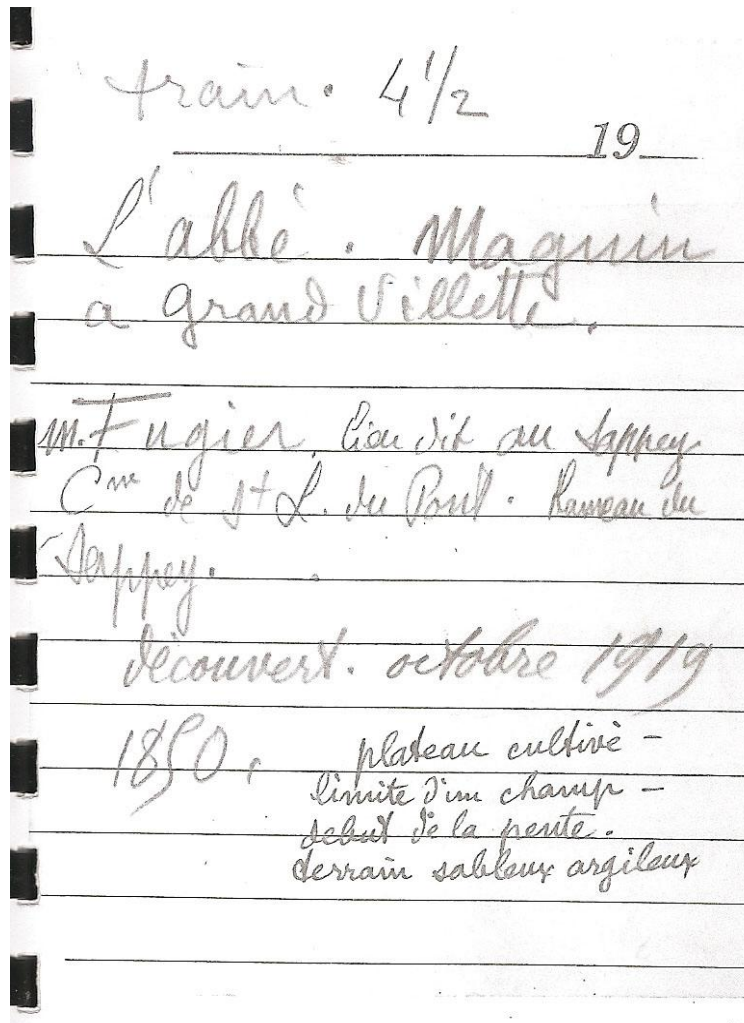 train. 4 1/2
19
L'abbé. Magnin
a Grand Villette.
M. Fugier. lieu dit au Sappey
Cne de St L. du Pont. hameau du
Sappey.
découvert. octobre 1919
1850.
plateau cultivé –
limite d'un champ –
debut de la pente.
terrain sableux argileux